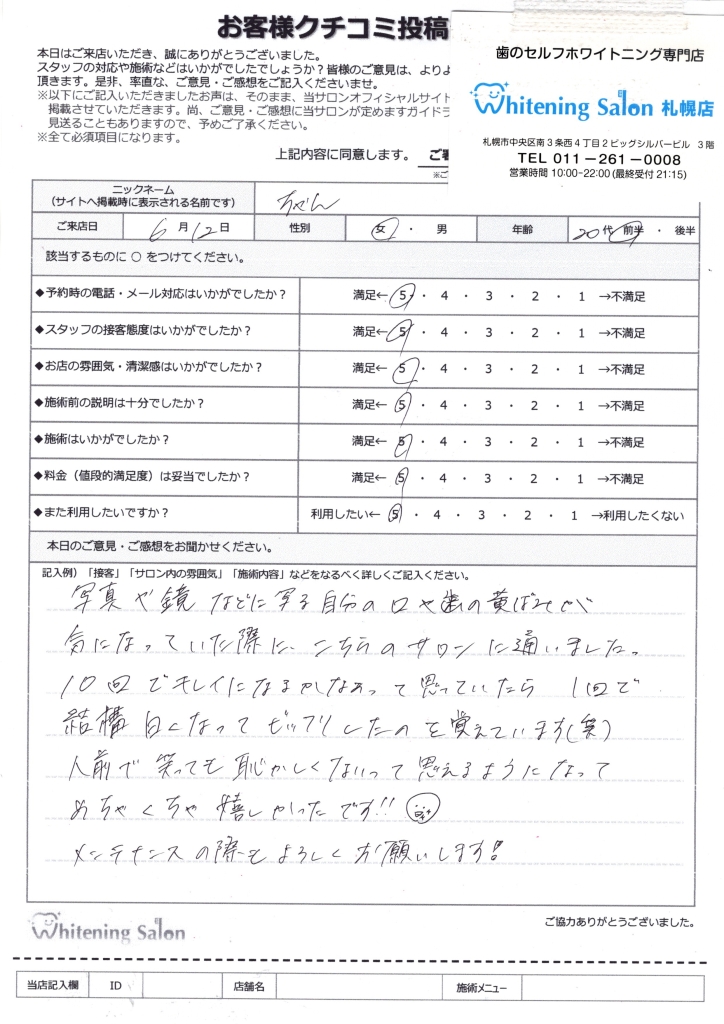 お客様クチコミ投稿
本日はご来店いただき、誠にありがとうございました。
スタッフの対応や施術などはいかがでしたでしょうか？皆様のご意見は、よりよ
頂きます。是非、率直な、ご意見・ご感想をご記入くださいませ。
※以下にご記入いただきましたお声は、そのまま、当サロンオフィシャルサイト
掲載させていただきます。尚、ご意見・ご感想に当サロンが定めますガイドラ
見送ることもありますので、予めご了承ください。
※全て必須項目になります。
上記内容に同意します。 ご署
※ご
歯のセルフホワイトニング専門店
Whitening Salon 札幌店
札幌市中央区南3条西4丁目2ビッグシルバービル 3階
TEL 011-261-0008
営業時間 10:00-22:00 (最終受付 21:15)
ニックネーム
(サイトへ掲載時に表示される名前です) ちゃん
ご来店日 6月12日 性別 女 ・ 男 年齢 20代 前半 ・ 後半
該当するものに○をつけてください。
◆予約時の電話・メール対応はいかがでしたか？ 満足← 5 ・ 4 ・ 3 ・ 2 ・ 1 →不満足
◆スタッフの接客態度はいかがでしたか？ 満足← 5 ・ 4 ・ 3 ・ 2 ・ 1 →不満足
◆お店の雰囲気・清潔感はいかがでしたか？ 満足← 5 ・ 4 ・ 3 ・ 2 ・ 1 →不満足
◆施術前の説明は十分でしたか？ 満足← 5 ・ 4 ・ 3 ・ 2 ・ 1 →不満足
◆施術はいかがでしたか？ 満足← 5 ・ 4 ・ 3 ・ 2 ・ 1 →不満足
◆料金（値段的満足度）は妥当でしたか？ 満足← 5 ・ 4 ・ 3 ・ 2 ・ 1 →不満足
◆また利用したいですか？ 利用したい← 5 ・ 4 ・ 3 ・ 2 ・ 1 →利用したくない
本日のご意見・ご感想をお聞かせください。
記入例）「接客」「サロン内の雰囲気」「施術内容」などをなるべく詳しくご記入ください。
写真や鏡などに写る自分の口や歯の黄ばみが
気になっていた際に、こちらのサロンに通いました。
10回でキレイになるかなぁって思っていたら 1回で
結構白くなってビックリしたのを覚えています(笑)
人前で笑っても恥かしくないって思えるようになって
めちゃくちゃ嬉しかったです!!
メンテナンスの際もよろしくお願いします!
Whitening Salon
ご協力ありがとうございました。
当店記入欄 ID 店舗名 施術メニュー